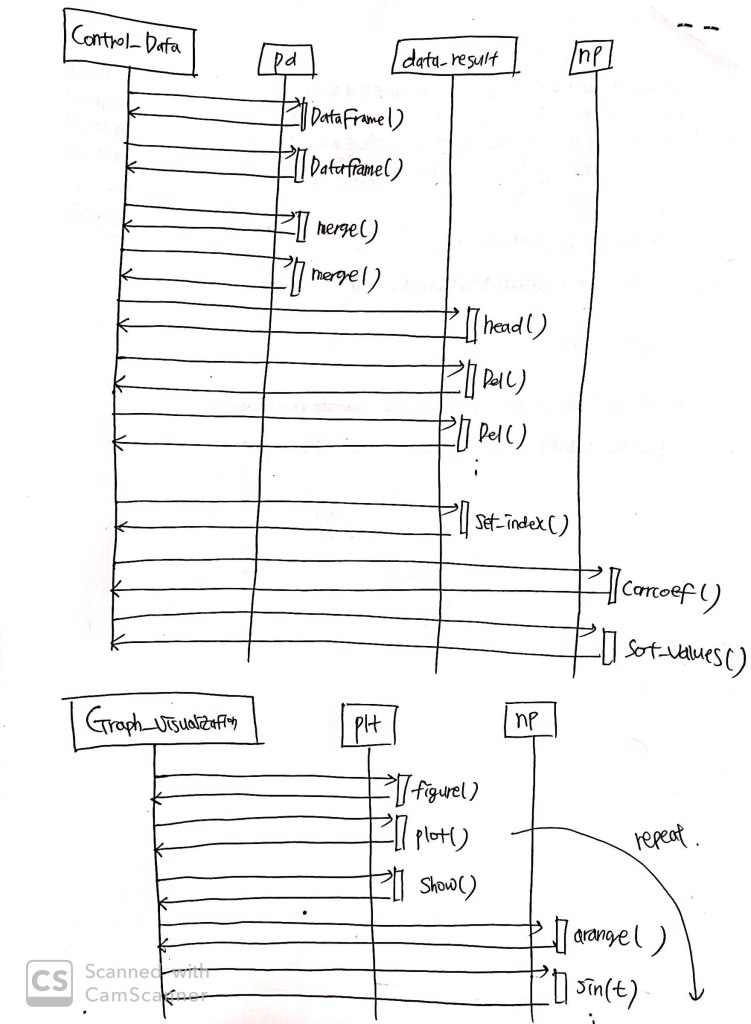 Control_Data
pd
data_result
np
DataFrame()
Dataframe()
merge()
merge()
head()
Del()
Del()
Set_index()
Corrcoef()
Sort_values()
Graph_Visualization
plt
np
figure()
plot()
repeat.
Show()
arange()
sin(t)
CS Scanned with
CamScanner